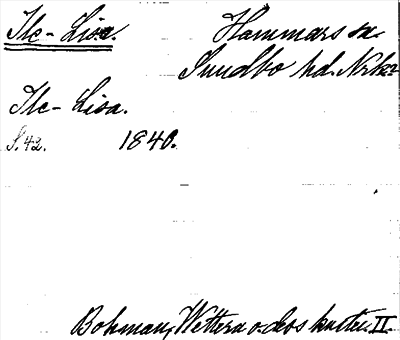 Ilc-Lisa. Hammars sn
Sundbo hd. Nrke
Ilc-Lisa.
S. 42. 1840.
Bohman, Wettern o. dess kuster. II.